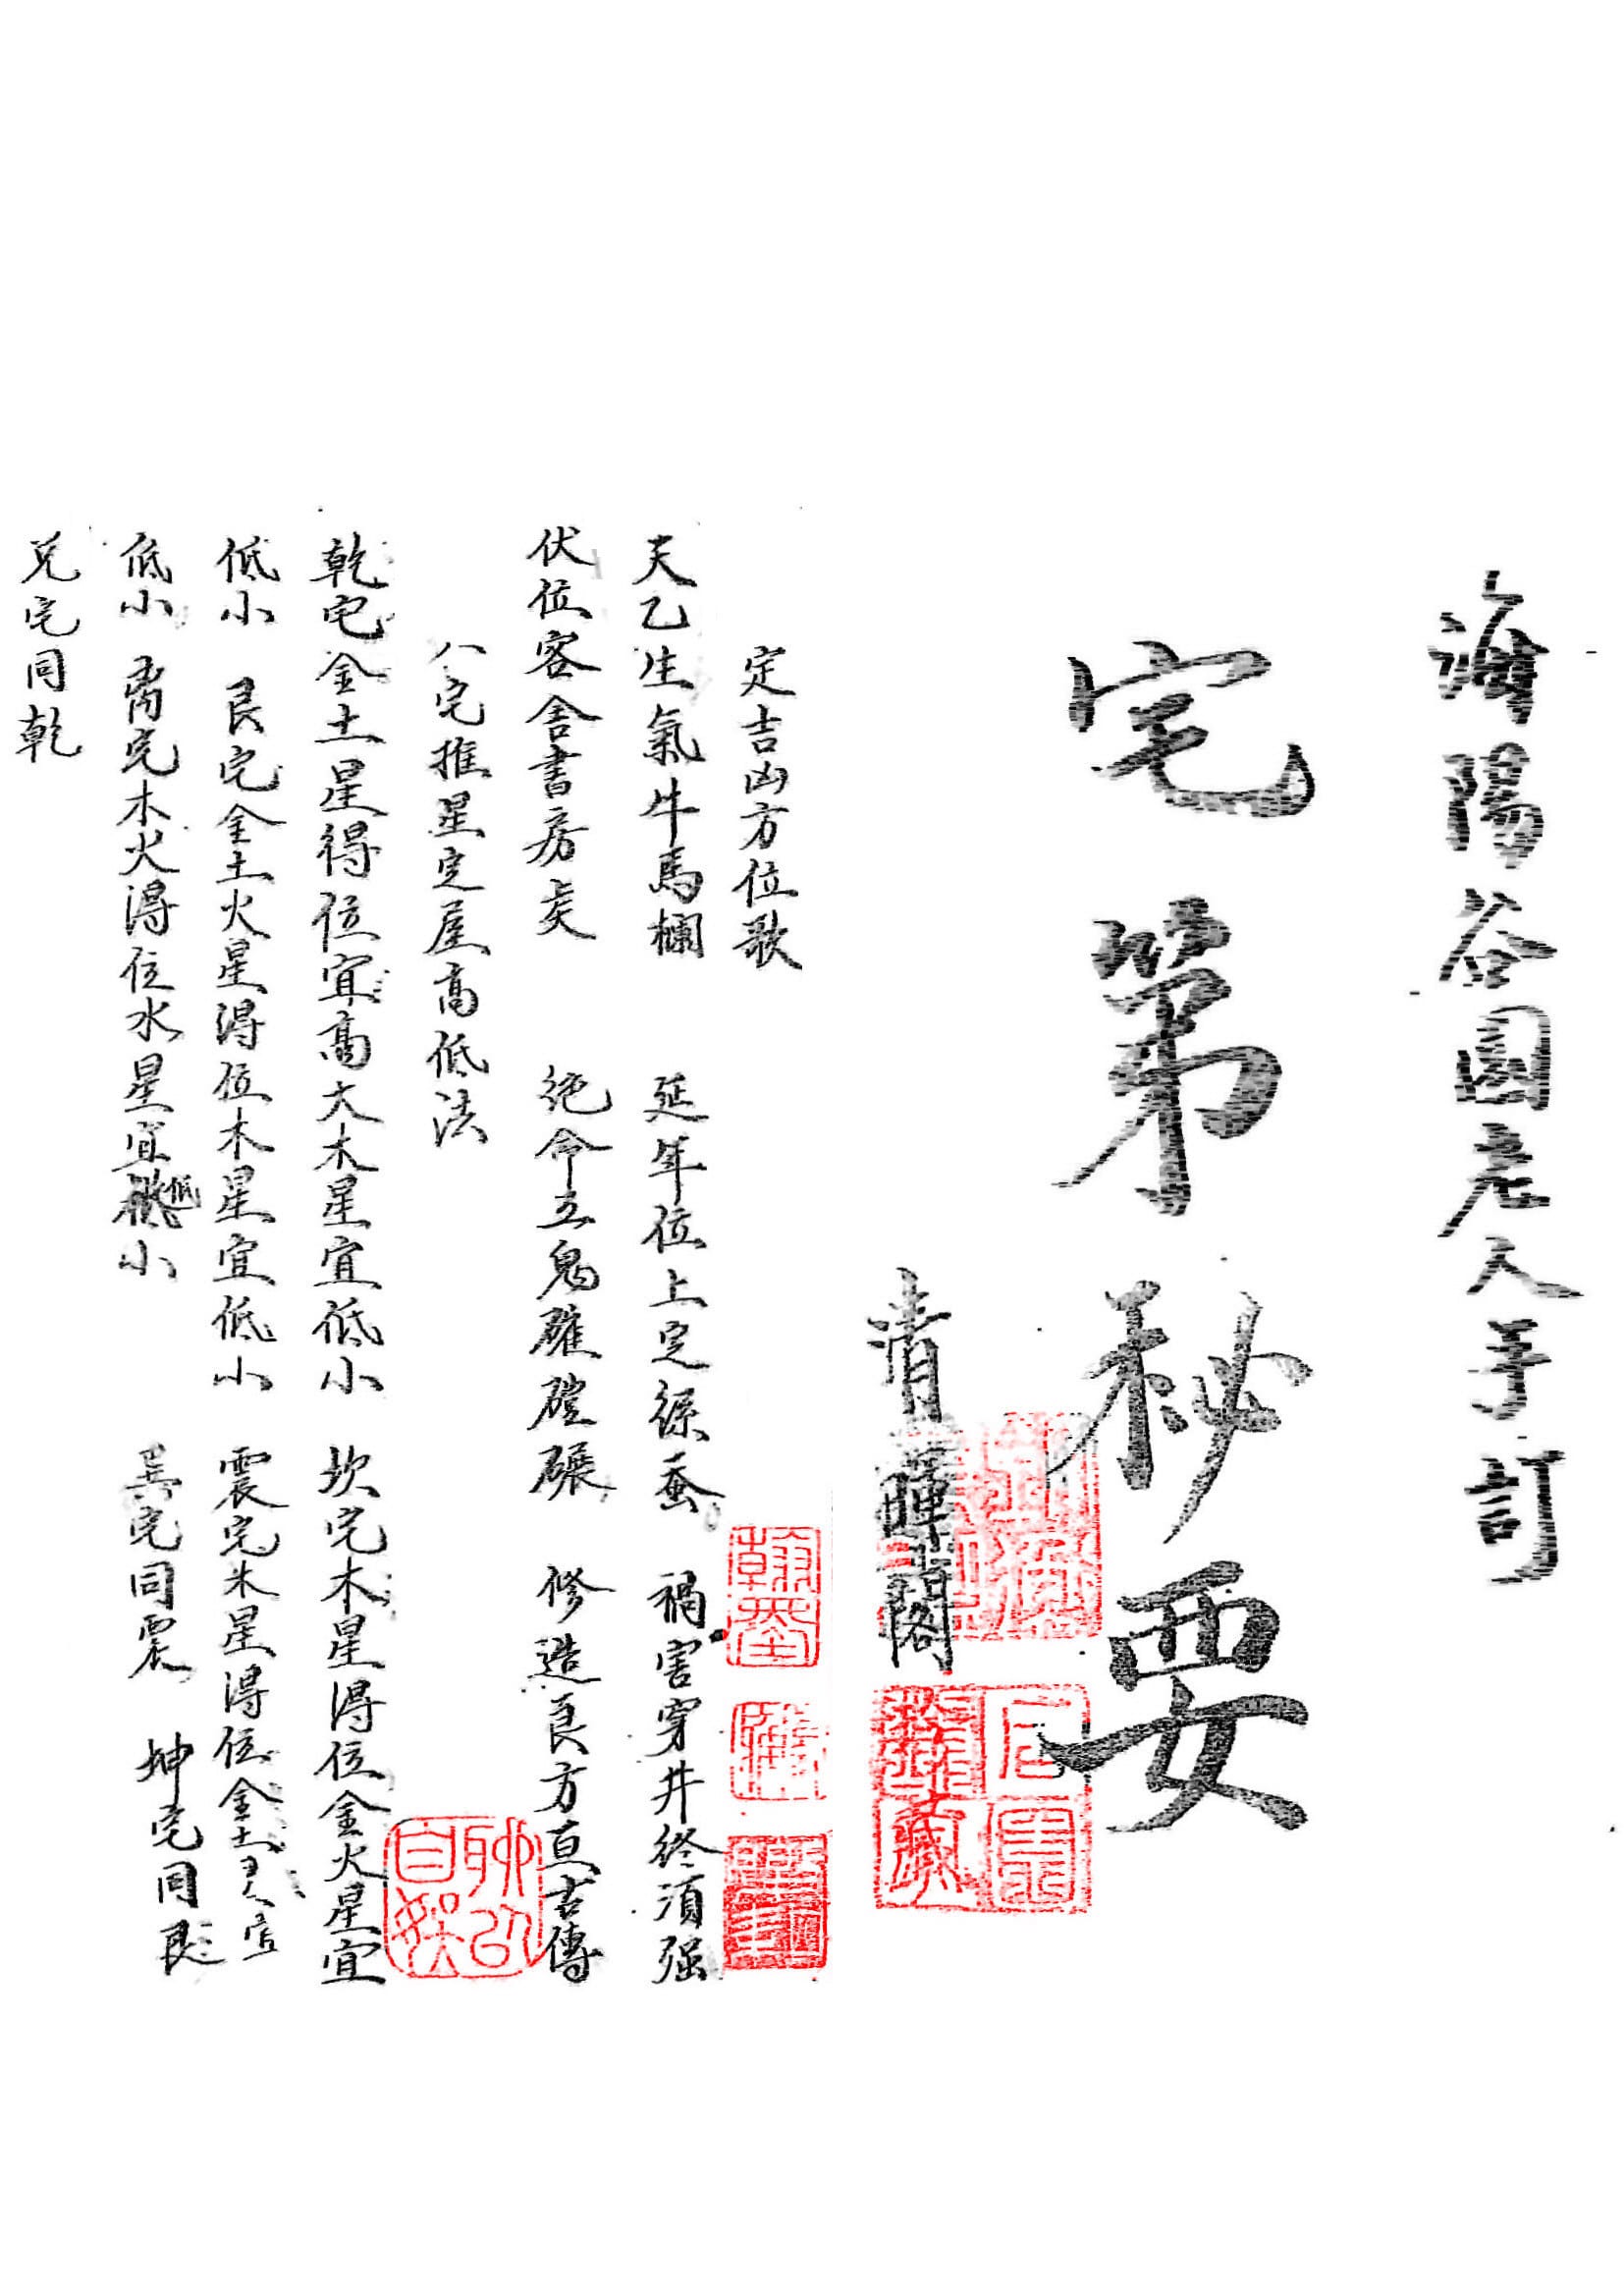 海陽谷園老人手訂
宅第秘要
清暉閣
定吉凶方位歌
天乙生氣牛馬欄 延年位上定綠蚕 禍害穿井終須強
伏位客舍書房美 絕命五鬼碓磑碾 修造良方亘古傳
八宅推星定屋高低法
乾宅金土星得位宜高大木星宜低小 坎宅木星得位金火星宜
低小 艮宅金土火星得位木星宜低小 震宅木星得位金土星宜
低小 离宅木火得位水星宜低小 巽宅同震 坤宅同艮
兌宅同乾
翰墨
聊以自娛